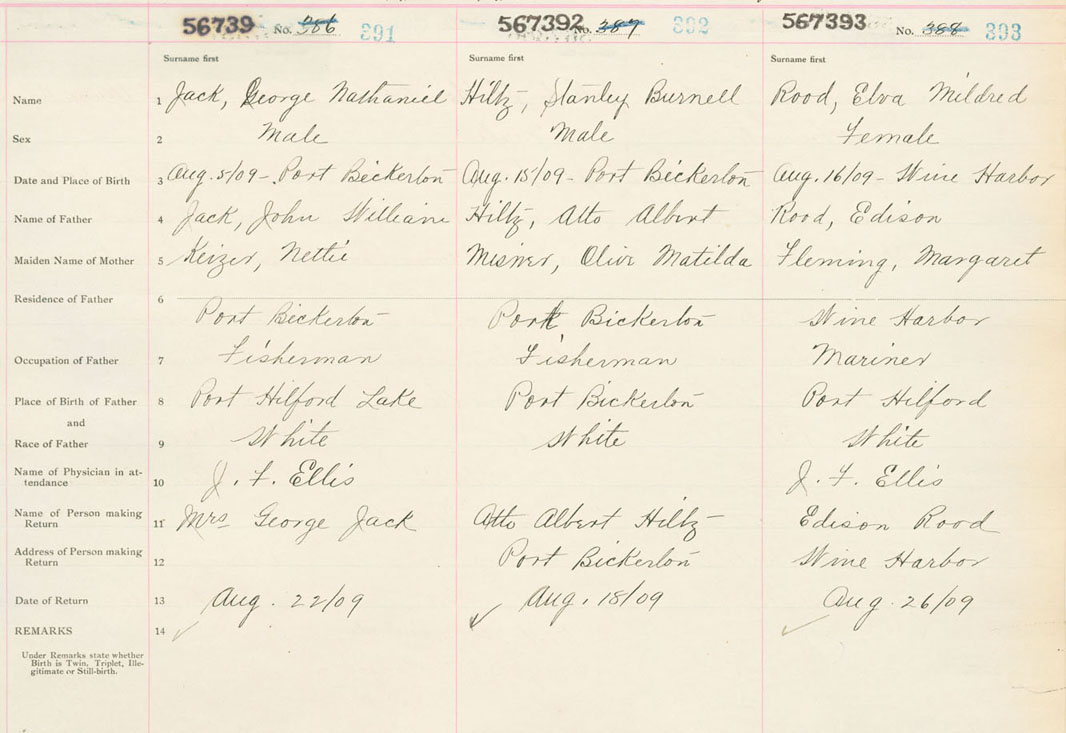 56739 No. 386 391 567392 No. 387 392 567393 No. 388 393
Surname first Surname first Surname first
Name 1 Jack, George Nathaniel Hiltz, Stanley Burnell Rood, Elva Mildred
Sex 2 Male Male Female
Date and Place of Birth 3 Aug. 5/09 - Port Bickerton Aug. 15/09 - Port Bickerton Aug. 16/09 - Wine Harbor
Name of Father 4 Jack, John William Hiltz, Atto Albert Rood, Edison
Maiden Name of Mother 5 Keizer, Nettie Misner, Olive Matilda Fleming, Margaret
Residence of Father 6 Port Bickerton Port Bickerton Wine Harbor
Occupation of Father 7 Fisherman Fisherman Mariner
Place of Birth of Father 8 Port Hilford Lake Port Bickerton Port Hilford
and
Race of Father 9 White White White
Name of Physician in at-
tendance 10 J. F. Ellis J. F. Ellis
Name of Person making
Return 11 Mrs George Jack Atto Albert Hiltz Edison Rood
Address of Person making
Return 12 Port Bickerton Wine Harbor
Date of Return 13 Aug. 22/09 Aug. 18/09 Aug. 26/09
REMARKS 14
Under Remarks state whether
Birth is Twin, Triplet, Ille-
gitimate or Still-birth.